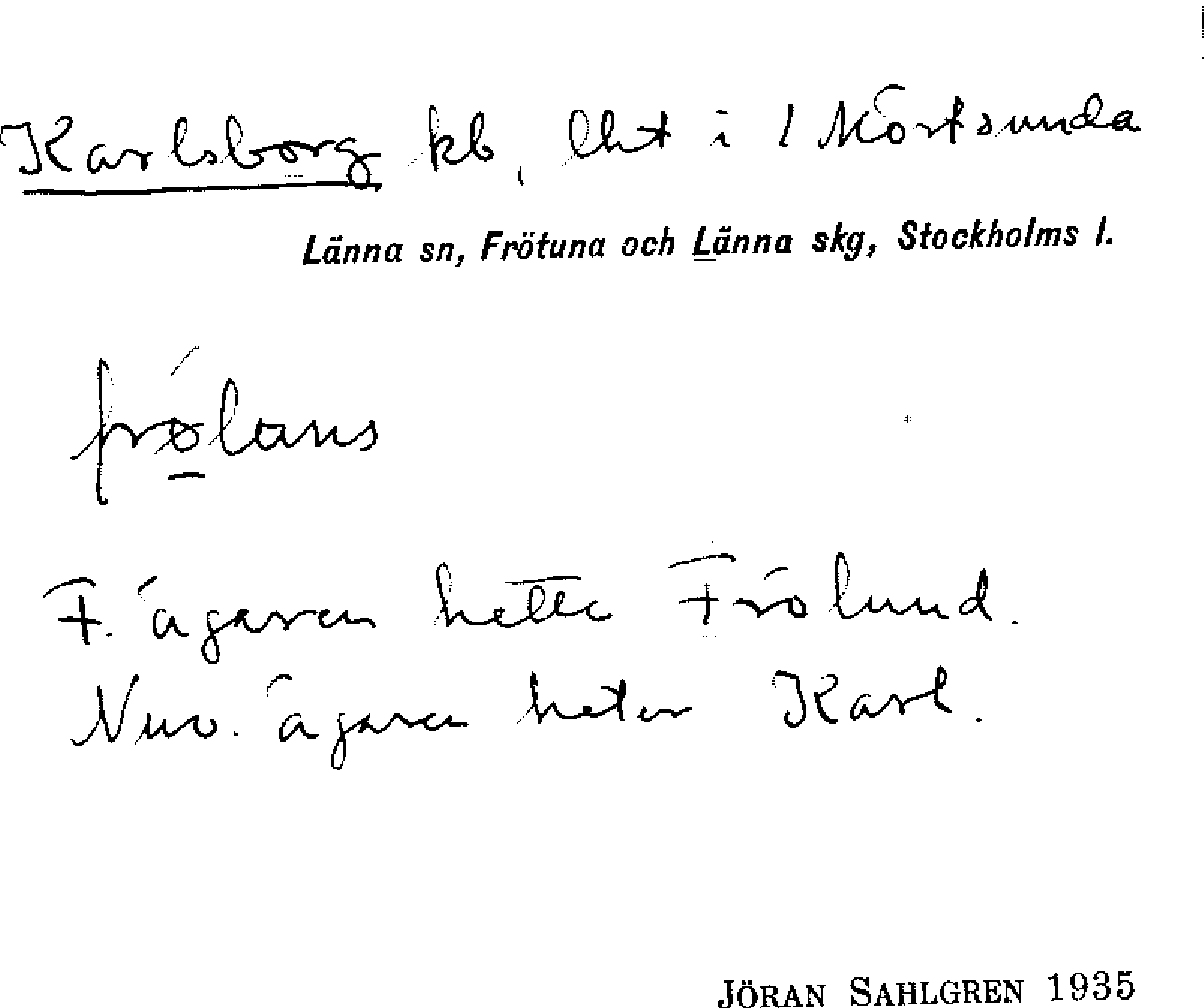 Karlsborg kb, lht i 1 Mörtsunda
Länna sn, Frötuna och Länna skg, Stockholms l.
frø̀lans
F. ägaren hette Frölund.
Nuv. ägaren heter Karl.
JÖRAN SAHLGREN 1935